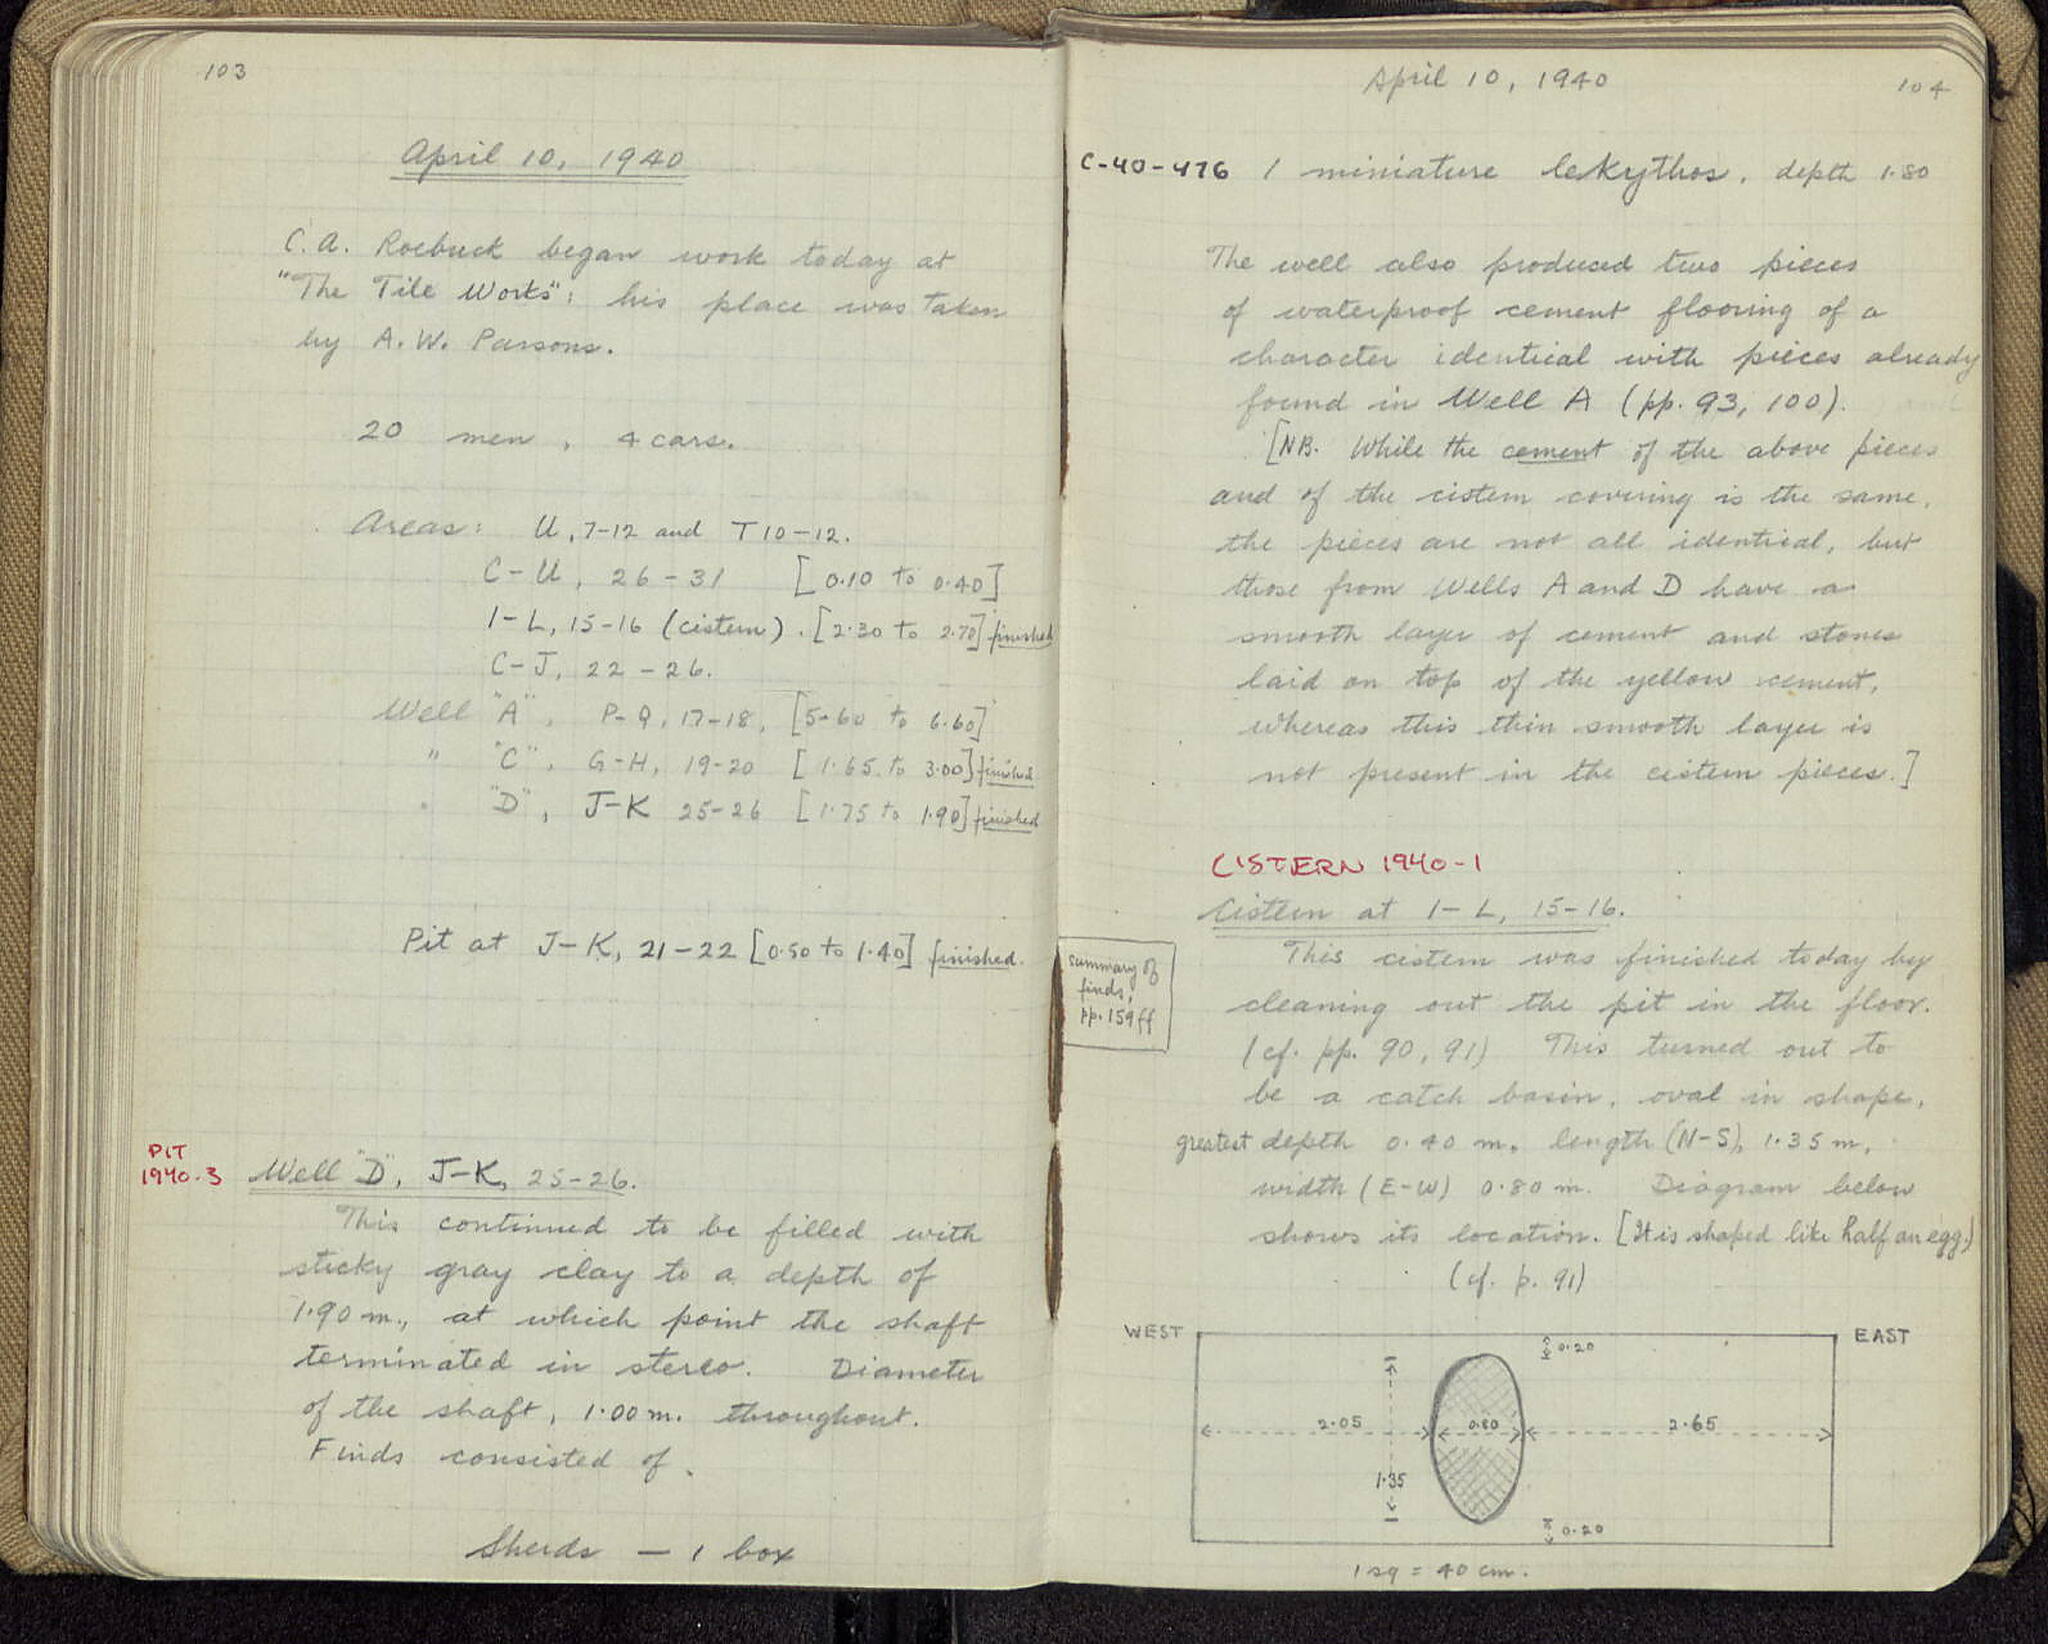 103
April 10, 1940
C. A. Roebuck began work today at
"The Tile Works"; his place was taken
by A. W. Parsons.
20 men, 4 cars.
Areas: U, 7-12 and T 10-12.
C-U, 26-31 [0.10 to 0.40]
I-L, 15-16 (cistern). [2.30 to 2.70] finished
C-J, 22-26.
Well "A", P-Q, 17-18, [5.60 to 6.60]
" "C", G-H, 19-20 [1.65 to 3.00] finished
" "D", J-K 25-26 [1.75 to 1.90] finished
Pit at J-K, 21-22 [0.50 to 1.40] finished.
PIT
1940-3
Well "D", J-K, 25-26.
This continued to be filled with
sticky gray clay to a depth of
1.90 m., at which point the shaft
terminated in stereo. Diameter
of the shaft, 1.00 m. throughout.
Finds consisted of.
Sherds — 1 box
April 10, 1940
104
C-40-476 1 miniature lekythos, depth 1.80
The well also produced two pieces
of waterproof cement flooring of a
character identical with pieces already
found in Well A (pp. 93, 100).
[NB. While the cement of the above pieces
and of the cistern covering is the same,
the pieces are not all identical, but
those from Wells A and D have a
smooth layer of cement and stones
laid on top of the yellow cement,
whereas this thin smooth layer is
not present in the cistern pieces.]
CISTERN 1940-1
Cistern at I-L, 15-16.
summary of
finds,
pp. 159 ff
This cistern was finished today by
cleaning out the pit in the floor.
(cf. pp. 90, 91) This turned out to
be a catch basin, oval in shape,
greatest depth 0.40 m. length (N-S), 1.35 m,
width (E-W) 0.80 m. Diagram below
shows its location. [It is shaped like half an egg.)
(cf. p. 91)
WEST
EAST
0.20
2.05
0.80
2.65
1.35
0.20
1 sq = 40 cm.